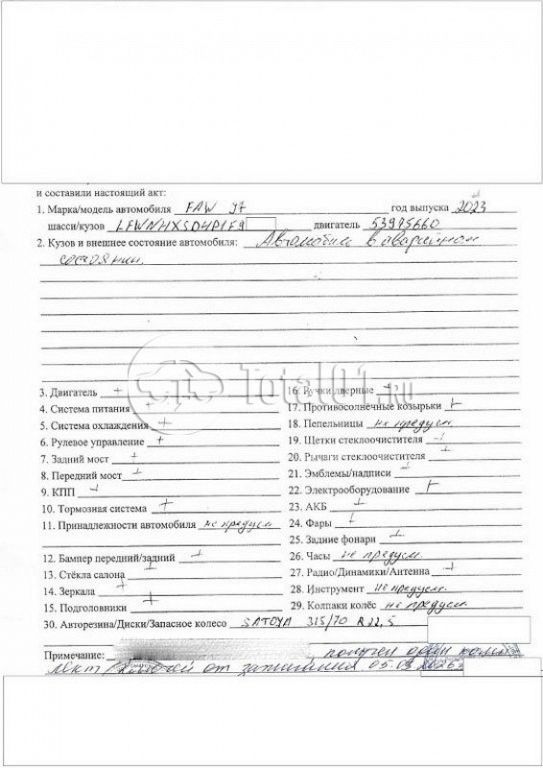 и составили настоящий акт:
1. Марка/модель автомобиля FAW J7 год выпуска 2023
шасси/кузов LFWNHXSD4P1F9 двигатель 53975660
2. Кузов и внешнее состояние автомобиля: Автомобиль в аварийном
состоянии.
Total01.ru
3. Двигатель +
16. Ручки дверные +
4. Система питания +
17. Противосолнечные козырьки +
5. Система охлаждения +
18. Пепельницы не предусм.
6. Рулевое управление +
19. Щетки стеклоочистителя +
7. Задний мост +
20. Рычаги стеклоочистителя +
8. Передний мост +
21. Эмблемы/надписи +
9. КПП +
22. Электрооборудование +
10. Тормозная система +
23. АКБ +
11. Принадлежности автомобиля не предусм
24. Фары +
25. Задние фонари +
12. Бампер передний/задний +
26. Часы не предусм.
13. Стёкла салона +
27. Радио/Динамики/Антенна +
14. Зеркала +
28. Инструмент не предусм.
15. Подголовники +
29. Колпаки колёс не предусм.
30. Авторезина/Диски/Запасное колесо SATOYA 315/70 R22,5
Примечание: получен один комп
лект ключей от зажигания 05.03.2025г